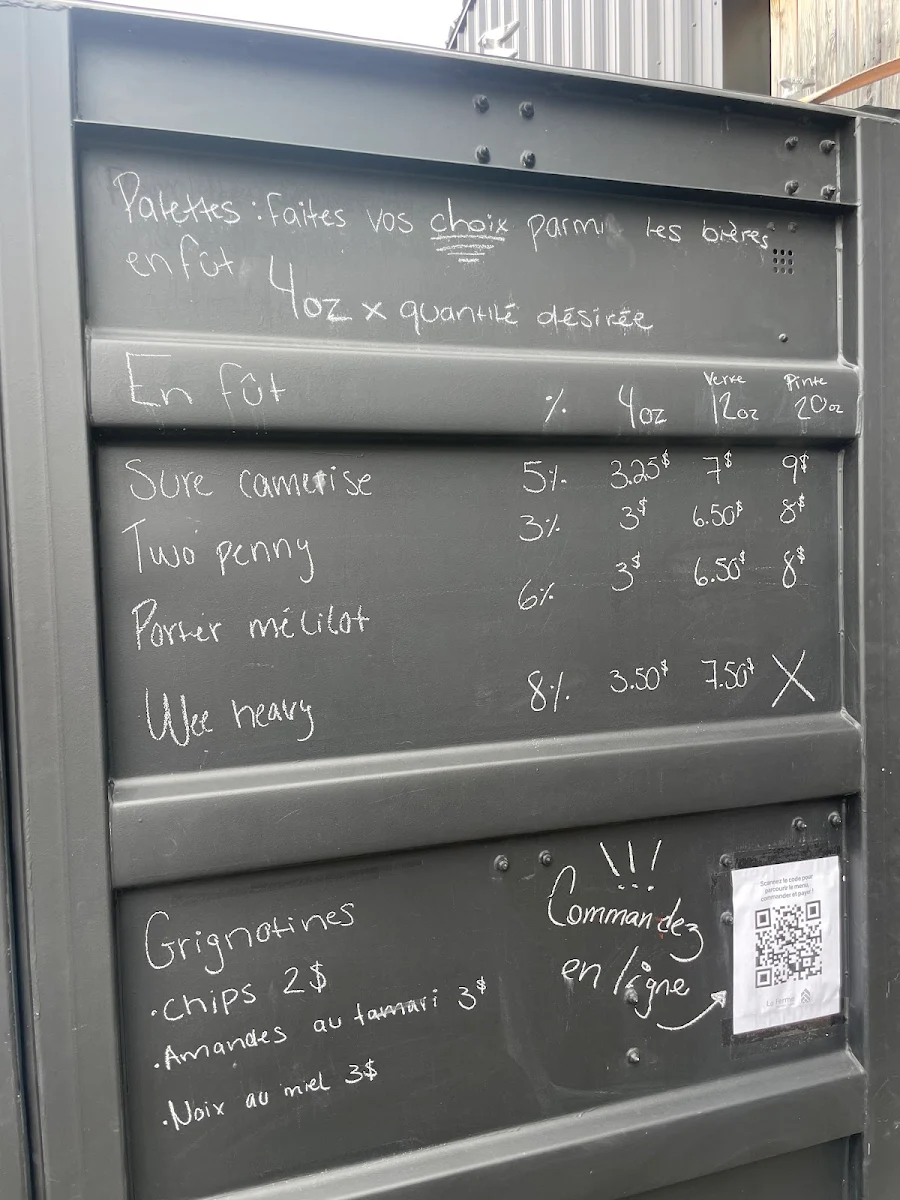 Palettes : faites vos choix parmi les bières
en fût
4oz x quantité désirée
En fût % 4oz Verre 12oz Pinte 20oz
Sure camerise 5% 3.25$ 7$ 9$
Two penny 3% 3$ 6.50$ 8$
Porter mélilot 6% 3$ 6.50$ 8$
Wee heavy 8% 3.50$ 7.50$ X
Grignotines
• Chips 2$
• Amandes au tamari 3$
• Noix au miel 3$
!!!
Commandez
en ligne
Scannez le code pour
parcourir le menu,
commander et payer !
La ferme